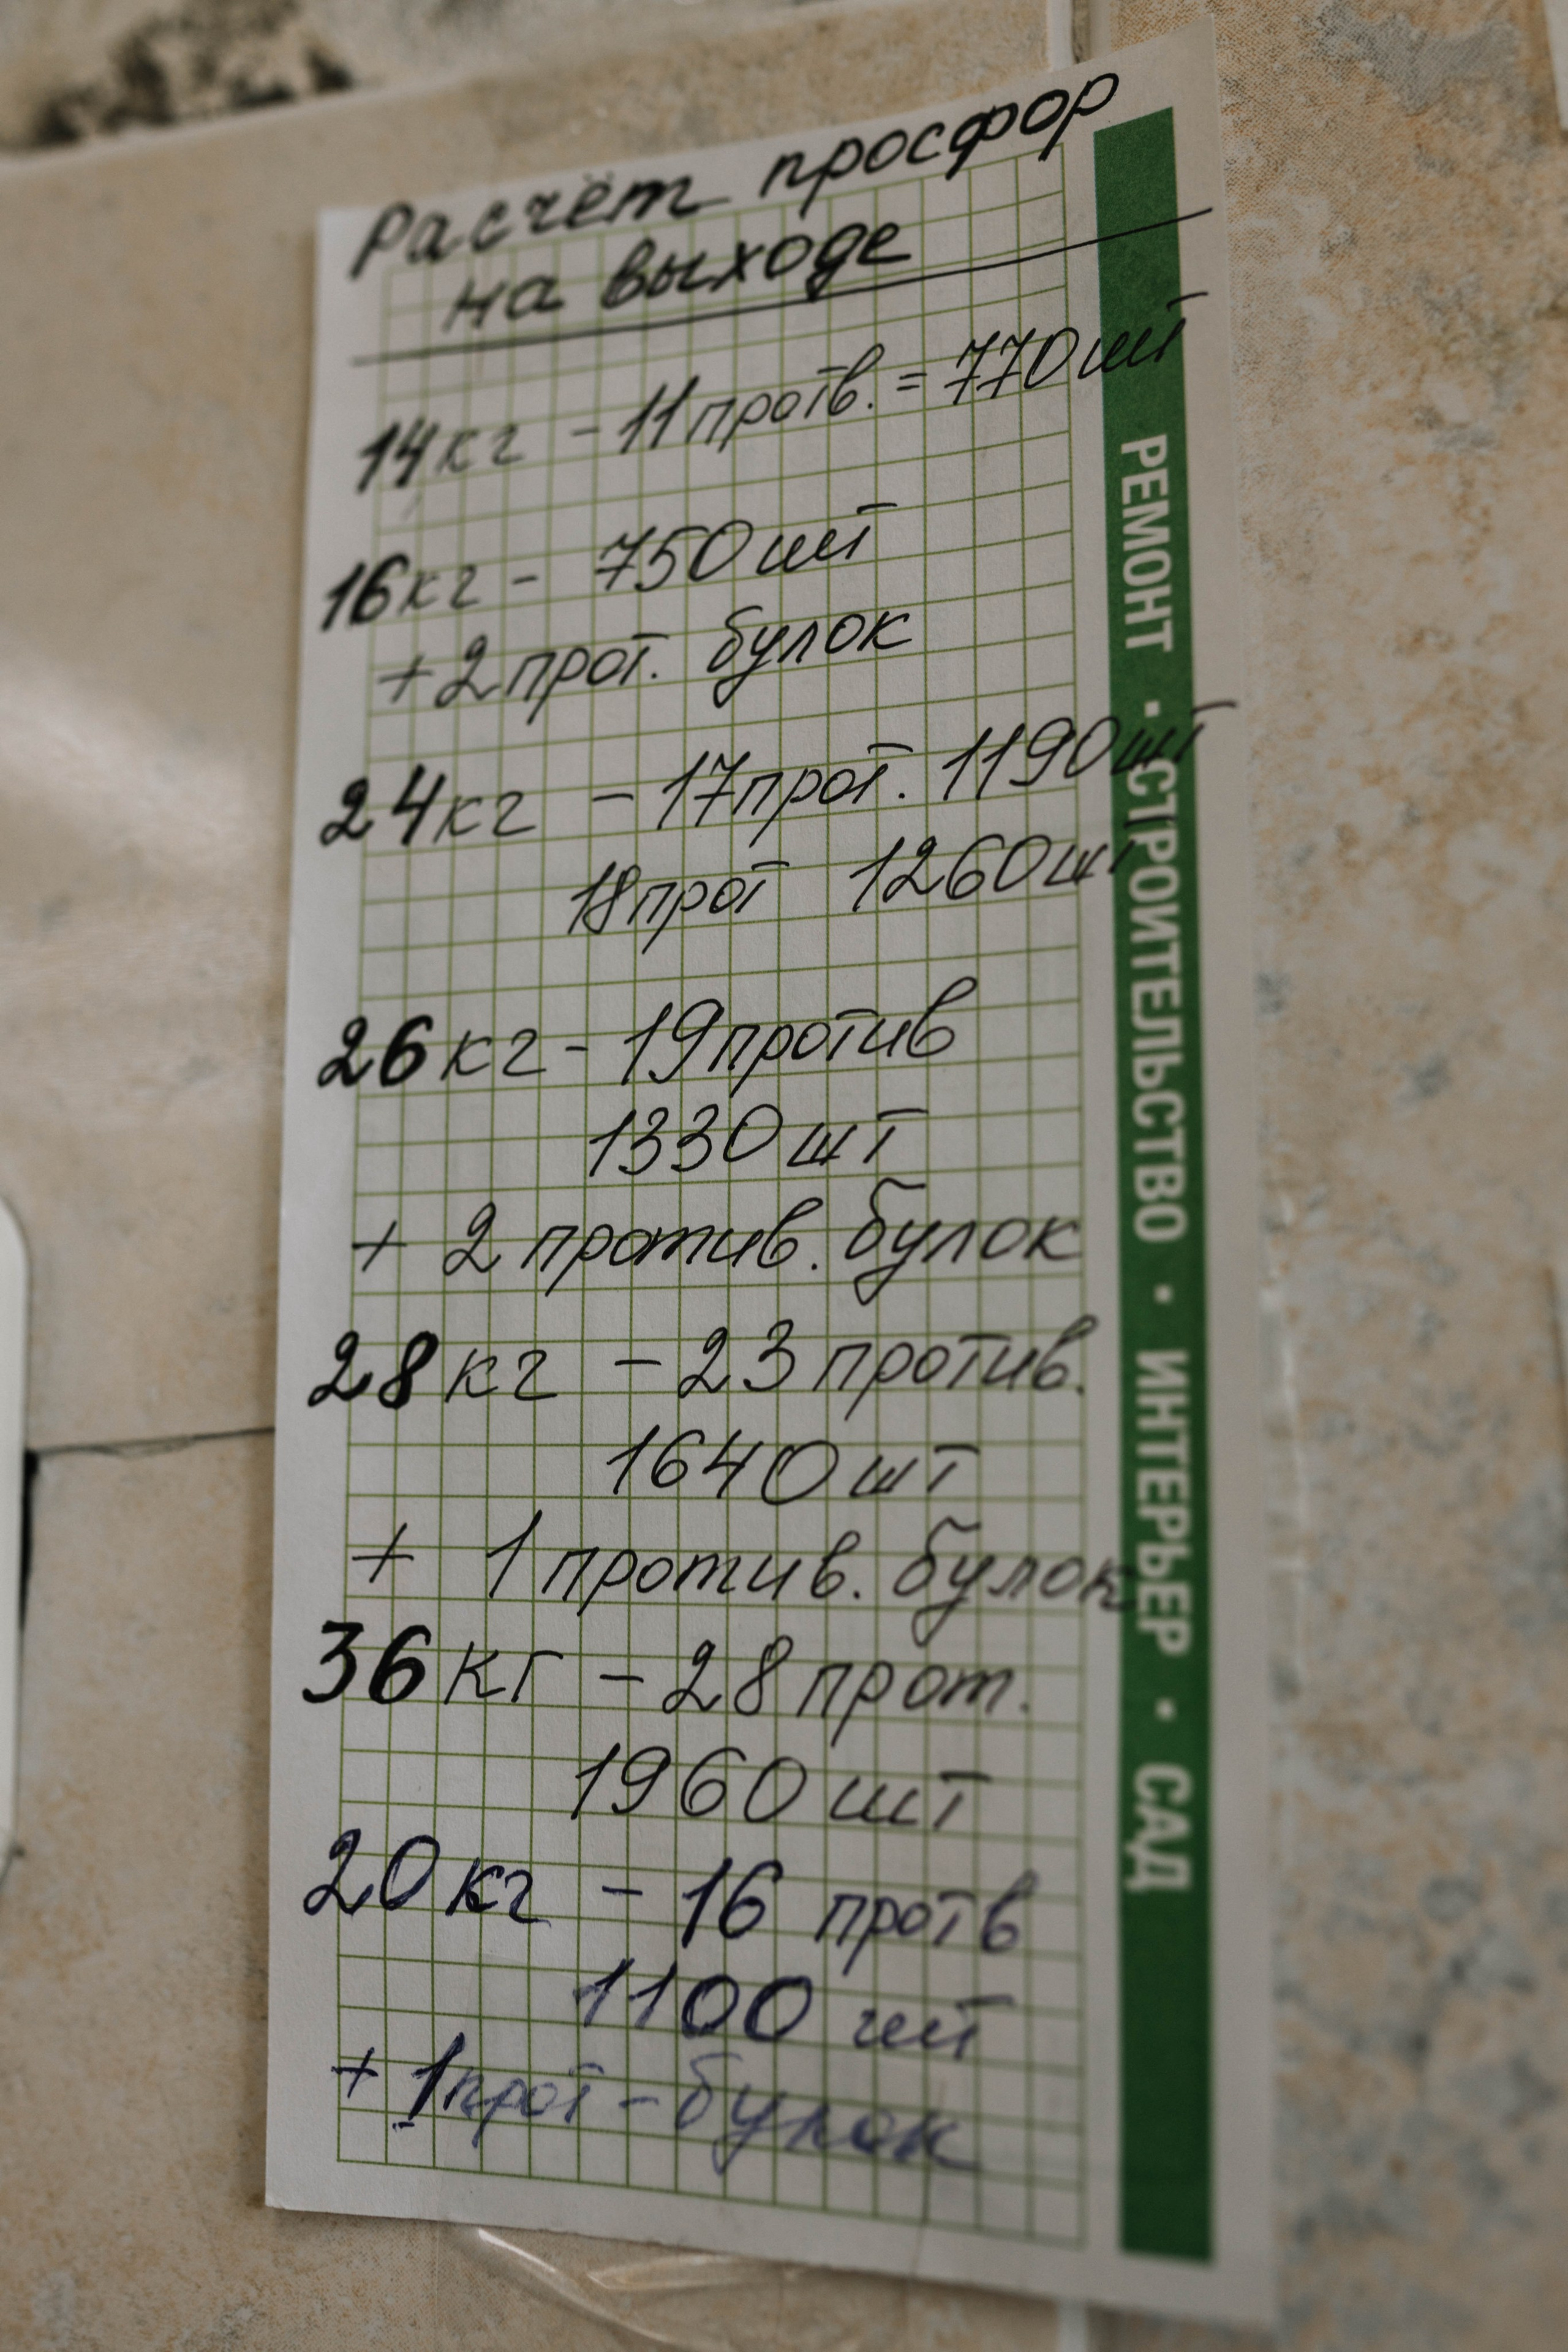 Расчёт просфор
на выходе
14кг - 11 протв. = 770 шт
16кг - 750 шт
+ 2 прот. булок
24кг - 17 прот. 1190 шт
18 прот 1260 шт
26кг - 19 против
1330 шт
+ 2 против. булок
28кг - 23 против.
1640 шт
+ 1 против. булок
36кг - 28 прот.
1960 шт
20кг - 16 протв
1100 шт
+ 1 прот - булок
РЕМОНТ · СТРОИТЕЛЬСТВО · ИНТЕРЬЕР · САД